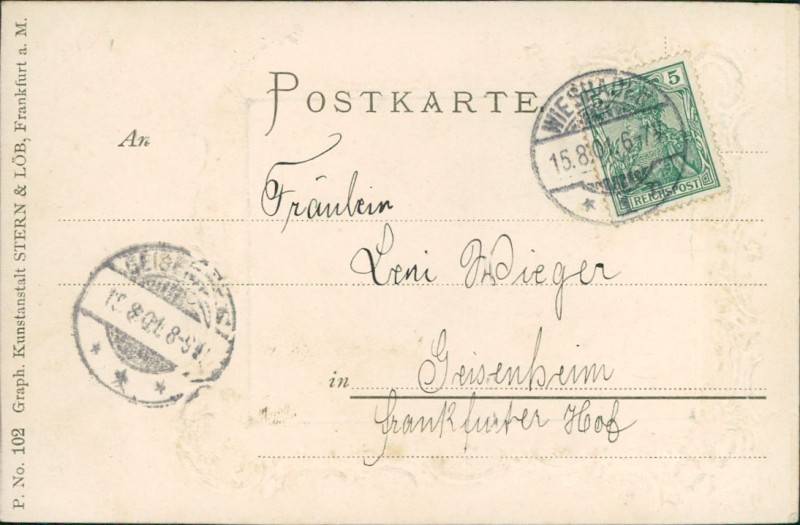 POSTKARTE
WIESBADEN
15.8.01. 6-7
5
REICHSPOST
An
Fräulein
Leni Wieger
in Geisenheim
Frankfurter Hof
8-9
P. No. 102 Graph. Kunstanstalt STERN & LÖB, Frankfurt a. M.